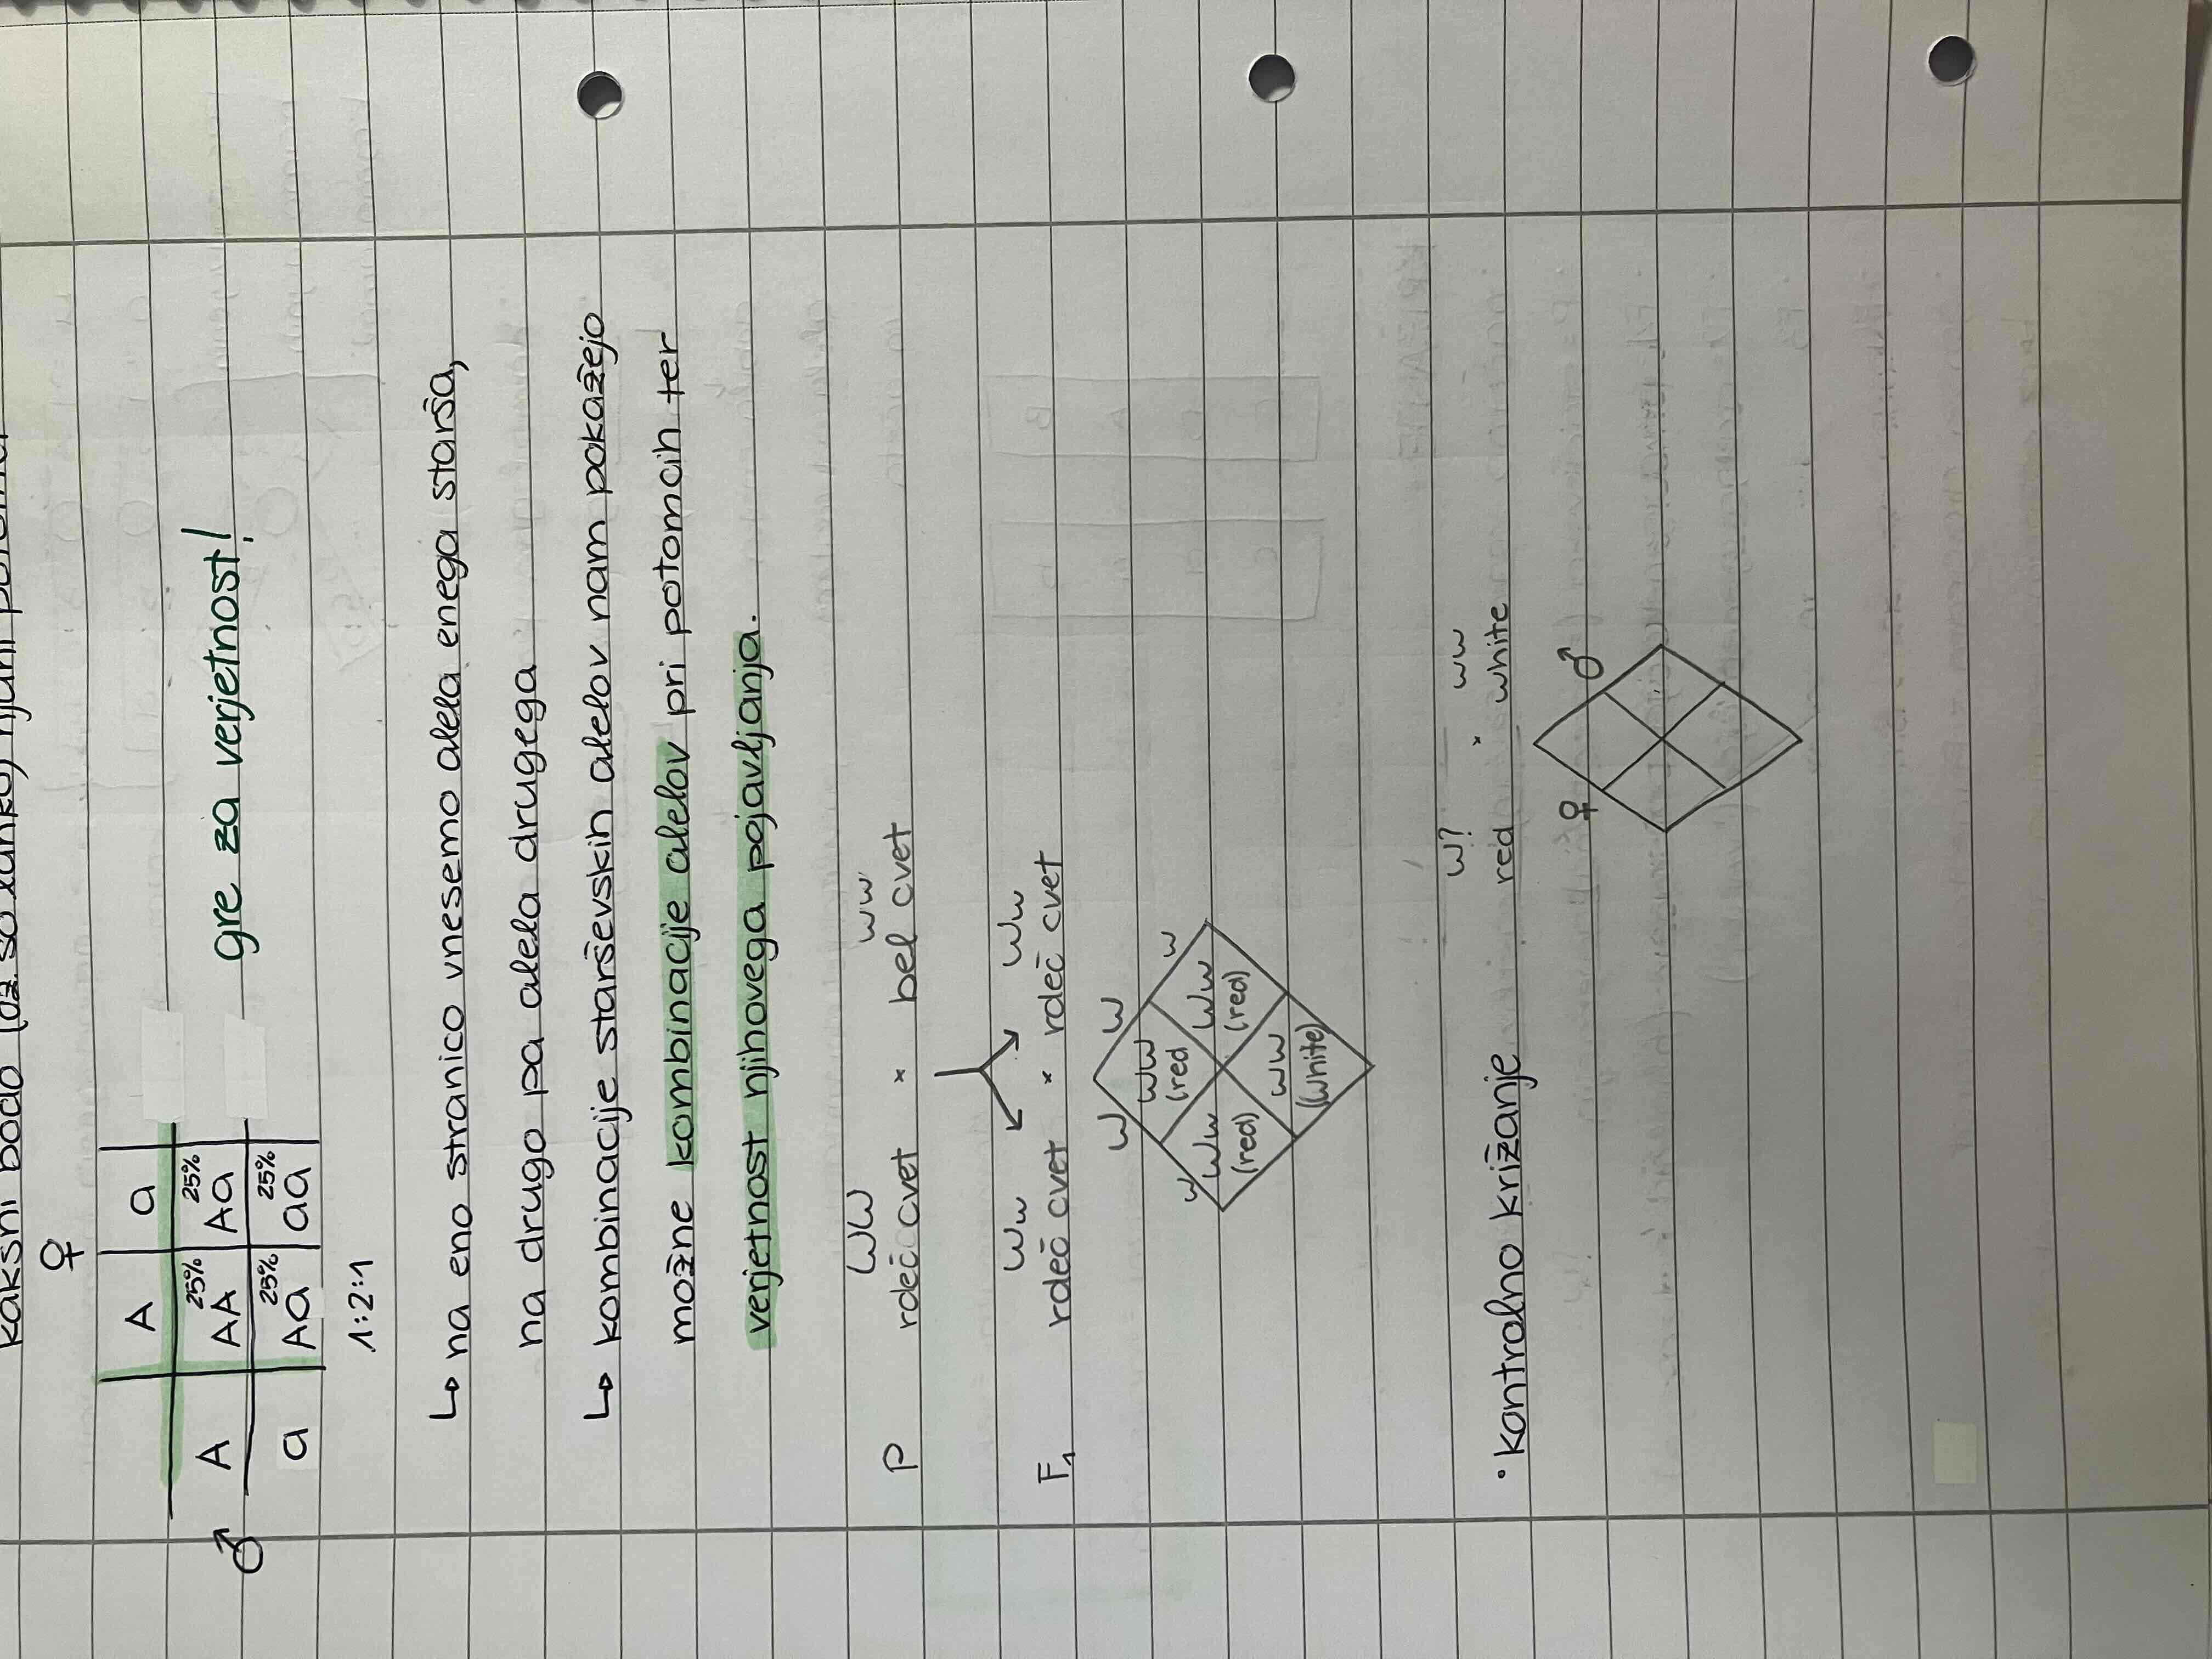 kakšni bodo
♀
A a
♂ A AA 25% Aa 25%
a Aa 25% aa 25%
gre za verjetnost!
1:2:1
↳ na eno stranico vnesemo alela enega starša,
na drugo pa alela drugega
↳ kombinacije starševskih alelov nam pokažejo
možne kombinacije alelov pri potomcih ter
verjetnost njihovega pojavljanja.
WW ww
P rdeč cvet × bel cvet
Ww Ww
F1 rdeč cvet × rdeč cvet
W W
w WW w
(red
Ww Ww
(red) (red)
ww
(white)
W? ww
• kontrolno križanje red × white
♀ ♂